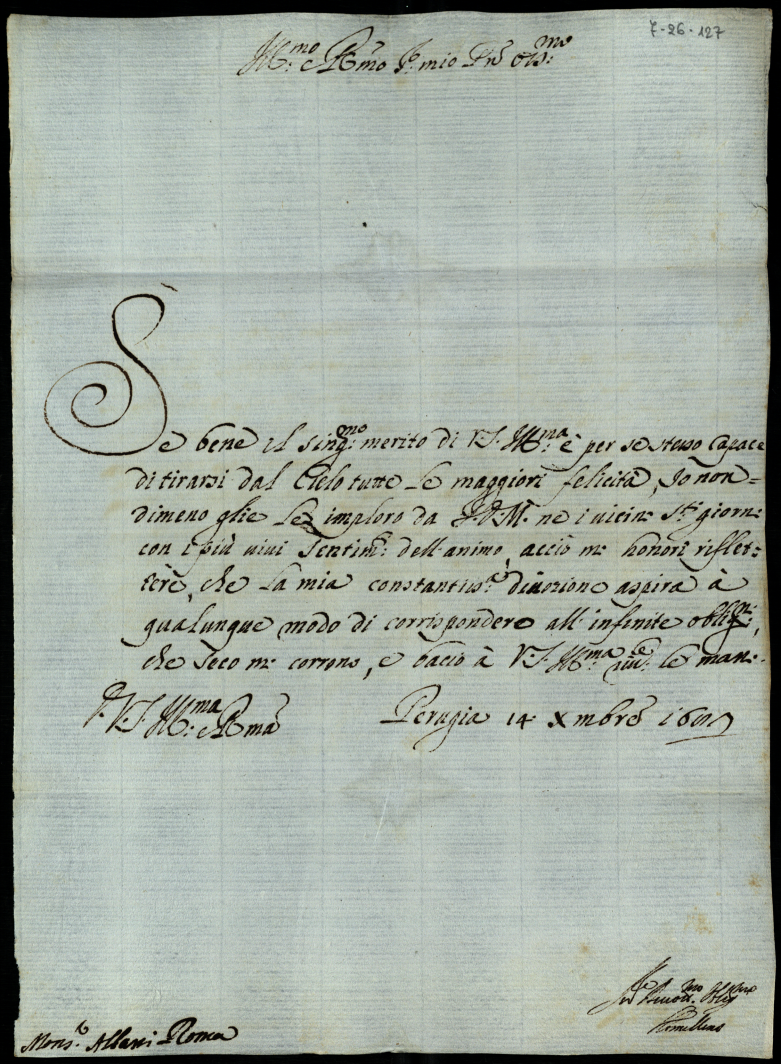 7-26-127
Ill:mo e Rmo Sr. mio Pne oss:mo
Se bene il sing:mo merito di V.S. Ill:ma è per se stesso capace
di tirarsi dal Cielo tutte le maggiori felicità, Io non=
dimeno glie le imploro da S.D.M. ne i vicin: sti: giorn:
con i più vivi sentim: dell'animo, acciò m: honori riflet:
tere, che la mia constantiss: divozione aspira à
qualunque modo di corrispondere all'infinite oblig:ni,
che seco m: corrono, e bacio à V.S. Ill:ma riv:te le man:.
D. V.S. Ill:ma e Rma
Perugia 14 Xmbre
Mons.r Albani Roma